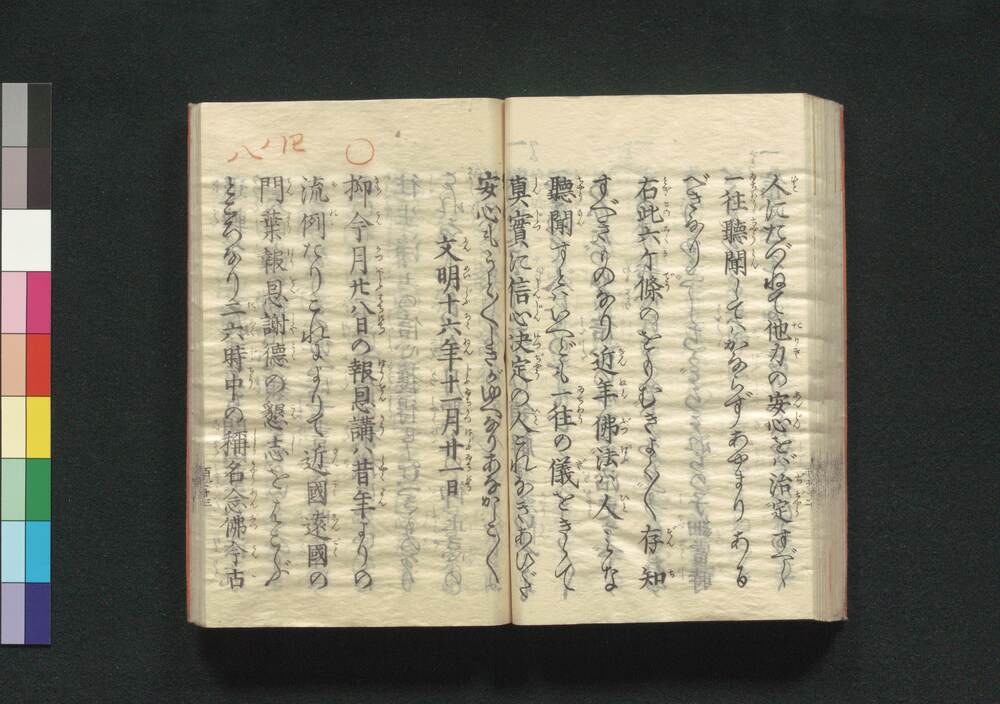 人にたづねて他力の安心をバ治定すべし
一往聽聞してハかならずあやまりある
べきなり
右此六ケ條のをもむきよく〳〵存知
すべきものなり近年佛法ハ人ミな
聽聞すとハいへども一往の儀をきゝて
真實に信心决定の人これなきあひだ
安心もうと〳〵しきがゆへなりあなかしこ〳〵
文明十六年十一月廿一日
抑今月廿八日の報恩講ハ昔年よりの
流例たりこれによりて近國遠國の
門葉報恩謝德の懇志をはこぶ
ところなり二六時中の稱名念佛今古